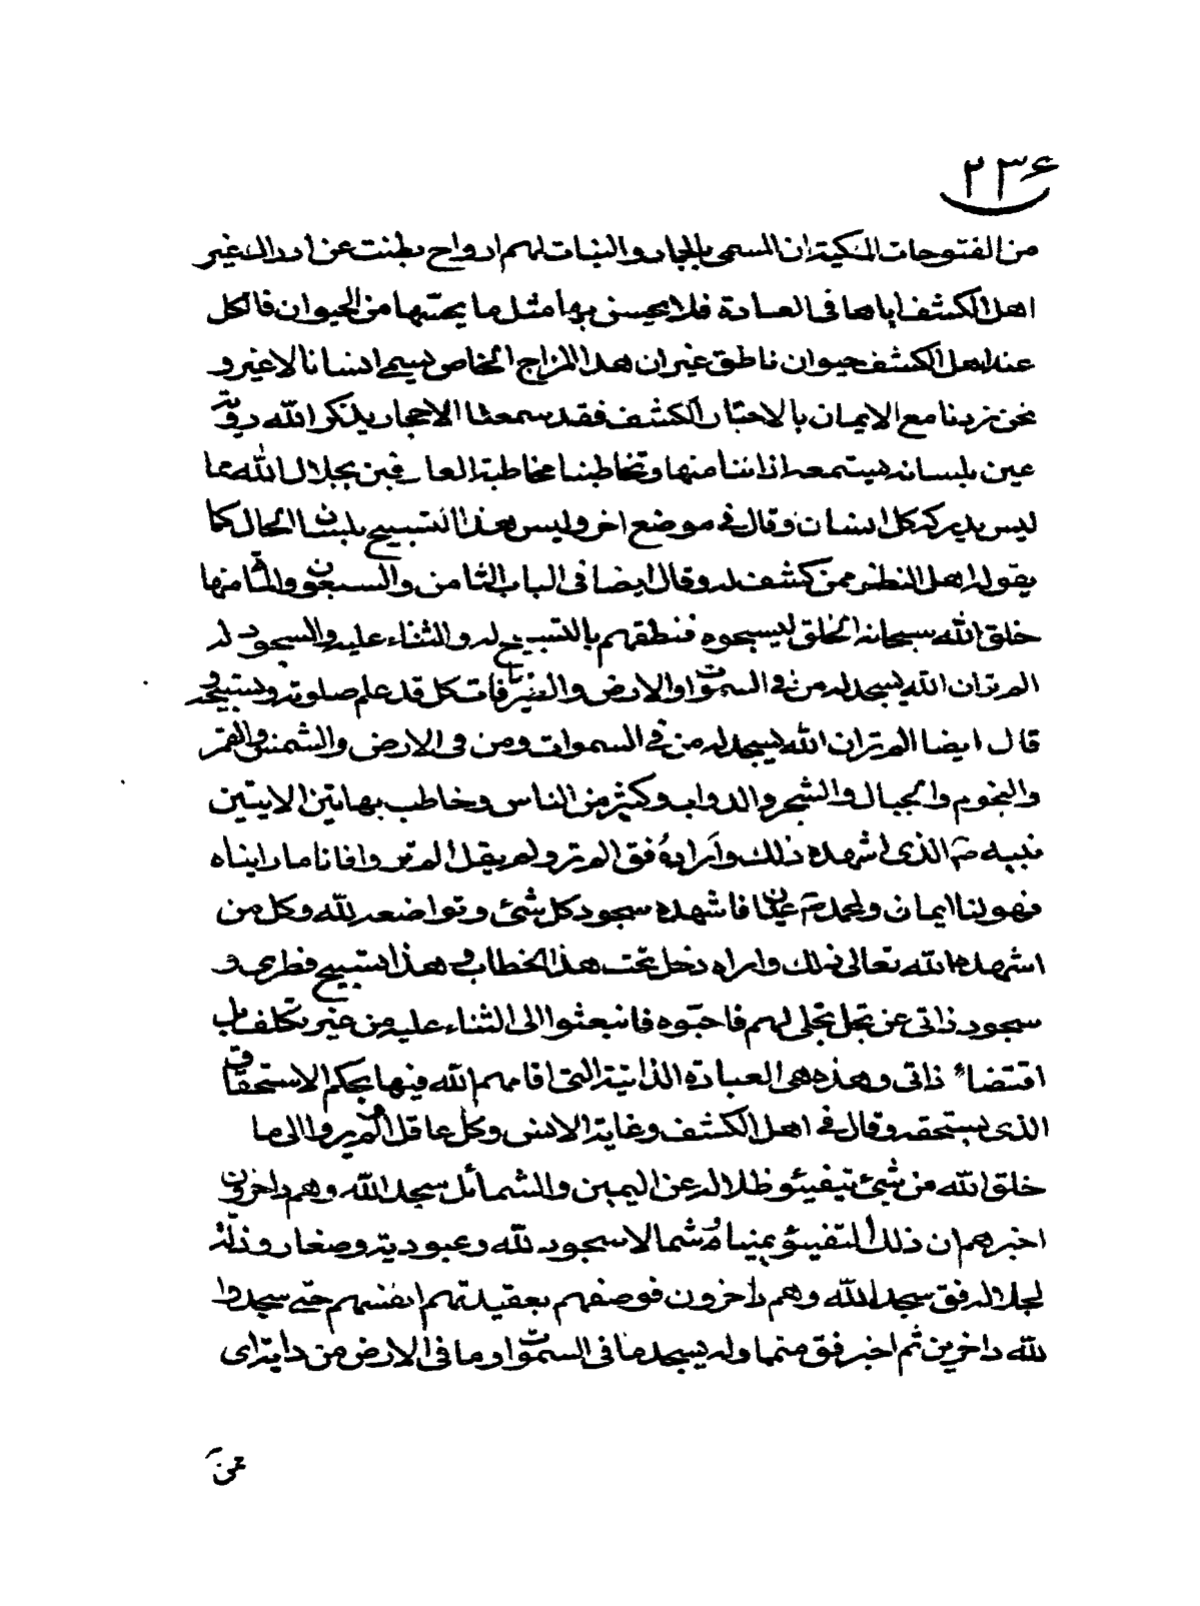 ٢٣٤
من الفتوحات المكية ان المسمى بالجماد والنبات لهم ارواح بطنت عن ادراك غير
اهل الكشف اياها فى العادة فلا يحسن بها مثل ما يحسّها من الحيوان فالكل
عند اهل الكشف حيوان ناطق غير ان هذا المزاج الخاص يسمى انسانا لا غير و
نحن زدنا مع الايمان بالاخبار الكشف فقد سمعنا الاحجار يذكر الله روية
عين بلسانه يستمعه اذاننا منها وتخاطبنا مخاطبة العارفين بجلال الله مما
ليس يدركه كل انسان وقال فى موضع اخر وليس هذا التسبيح بلسان الحال كما
يقوله اهل النظر ممن كشف له وقال ايضا فى الباب الثامن والسبعون والمأ منها
خلق الله سبحانه الخلق ليسبحوه فنطقهم بالتسبيح له والثناء عليه والسجود له
الم تر ان الله يسجد له من فى السموات والارض والطير صافات كل قد علم صلوته وتسبيحه و
قال ايضا الم تر ان الله يسجد له من فى السموات ومن فى الارض والشمس والقمر
والنجوم والجبال والشجر والدواب وكثير من الناس وخاطب بهاتين الايتين
نبيه صم الذى اشهده ذلك واراده فق الم تر ولم يقل الم تروا فانا ما رايناه
فهو لنا ايمان ولمحمد صم عيان فاشهده سجود كل شئ وتواضعه لله وكل من
اشهده الله تعالى ذلك واراه دخل تحت هذا الخطاب وهذا تسبيح فطرى و
سجود ذاتى عن تجل تجلى لهم فاحبّوه فانبعثوا الى الثناء عليه من غير تكلف بل
اقتضاء ذاتى وهذه هى العبادة الذاتية التى اقامهم الله فيها بحكم الاستحقاق
الذى يستحقه وقال فى اهل الكشف وغاية الانس وكل عاقل اولم يروا الى ما
خلق الله من شئ تيفيئو ظلاله عن اليمين والشمائل سجد الله وهم داخرون
اخبرهم ان ذلك التفيئو يمينا وشمالا سجود لله وعبودية وصغار وذلّة
لجلاله فق سجدا لله وهم داخرون فوصفهم بعقيدتهم انفسهم حتى سجدوا
لله داخرين ثم اخبر فق متمما وله يسجد ما فى السموات وما فى الارض من دابة اى
ممن